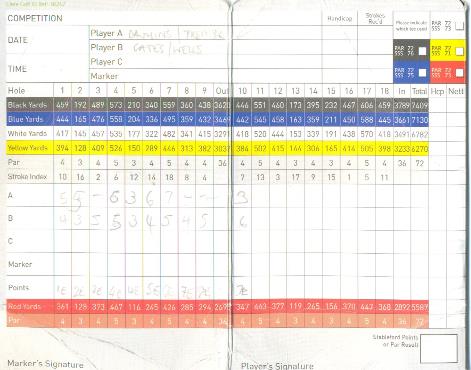 COMPETITION Handicap Strokes Rec'd Please indicate which tee used PAR 72 SSS 73
DATE Player A
Player B GATES/WELLS PAR 72 SSS 76 PAR 72 SSS 71
TIME Player C PAR 72 SSS 75
Marker
Hole 1 2 3 4 5 6 7 8 9 Out 10 11 12 13 14 15 16 17 18 In Total Hcp Nett
Black Yards 459 192 489 573 210 340 559 360 438 3620 446 551 460 173 395 232 467 606 459 3789 7409
Blue Yards 444 165 476 558 204 336 495 359 432 3469 442 545 458 163 359 211 450 588 445 3661 7130
White Yards 417 145 457 535 177 322 482 341 415 3291 418 520 444 153 339 191 438 570 418 3491 6782
Yellow Yards 394 128 409 526 150 289 446 313 382 3037 384 502 415 144 306 165 414 505 398 3233 6270
Par 4 3 4 5 3 4 5 4 4 36 4 5 4 3 4 3 4 5 4 36 72
Stroke Index 10 16 2 6 12 14 18 8 4 7 13 3 17 9 15 1 5 11
A 5 5 - 6 3 6 7 - - 3
B 4 3 5 5 3 4 5 4 5 6
C
Marker
Points
Red Yards 361 128 373 467 116 245 426 285 294 2695 347 463 377 119 265 156 370 447 368 2892 5587
Par 4 3 4 5 3 4 5 4 4 36 4 5 4 3 4 3 4 5 4 36 72
Stableford Points or Par Result
Marker's Signature Player's Signature